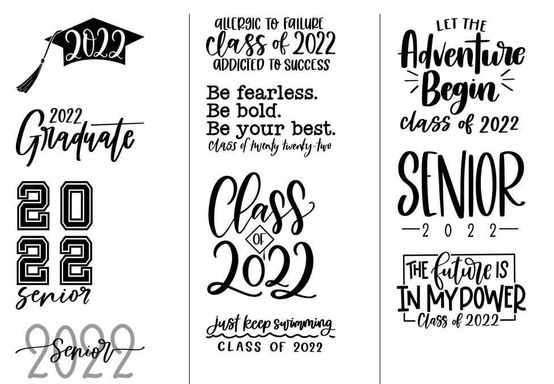 2022
2022
Graduate
20
22
senior
2022
Senior
ALLERGIC TO FAILURE
class of 2022
ADDICTED TO SUCCESS
Be fearless.
Be bold.
Be your best.
Class of twenty twenty-two
Class
OF
2022
just keep swimming
CLASS OF 2022
LET THE
Adventure
Begin
class of 2022
SENIOR
2022
THE future IS
IN MY POWER
Class of 2022